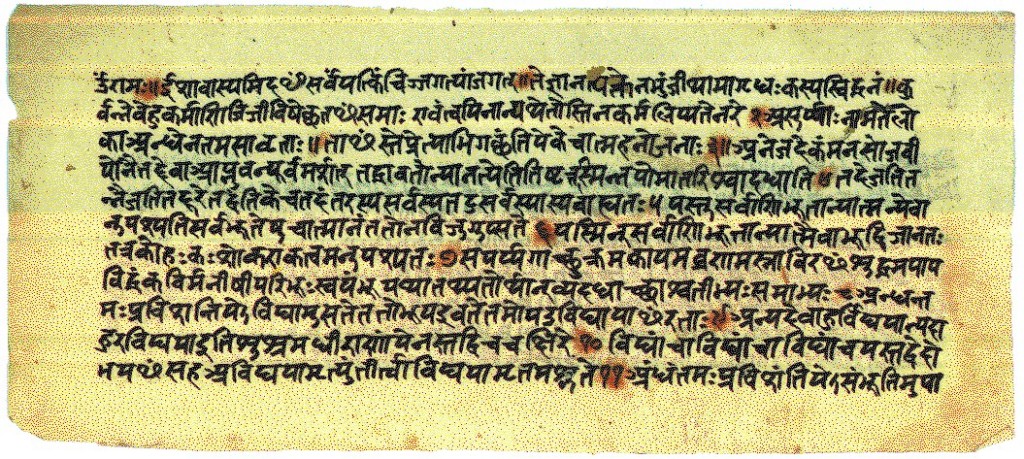 ॐ रामः॥ ईशावास्यमिदꣳ सर्वं यत्किंचिज्जगत्यां जगत्॥ तेन त्यक्तेन भुंजीथा मा गृधः कस्यस्विद्धनं॥ कु
र्वन्नेवेह कर्माणि जिजीविषेच्छतꣳ समाः एवं त्वयि नान्यथेतोस्ति न कर्म लिप्यते नरे २ असुर्य्याः नाम ते लो
का अन्धेन तमसावृताः॥ ताꣳस्ते प्रेत्याभिगच्छंति ये के चात्महनो जनाः ३॥ अनेजदेकं मनसो जवी
यो नैनद्देवा आप्नुवन्पूर्वमर्शत् तद्धावतोन्यानत्येति तिष्ठत्तस्मिन्नपो मातरिश्वा दधाति ४ तदेजति त
न्नैजति तद्दूरे तद्वंतिके च तदंतरस्य सर्वस्य तदु सर्वस्यास्य बाह्यतः ५ यस्तु सर्वाणि भूतान्यात्मन्येवा
नुपश्यति सर्वभूतेषु चात्मानं ततो न विजुगुप्सते ६ यस्मिन्सर्वाणि भूतान्यात्मैवाभूद्विजानतः
तत्र को मोहः कः शोक एकत्वमनुपश्यतः ७ स पर्य्यगाच्छुक्रमकायमव्रणमस्नाविरꣳ शुद्धमपाप
विद्धं कविर्मनीषी परिभूः स्वयंभूर्याथातथ्यतोर्थान्व्यदधाच्छाश्वतीभ्यः समाभ्यः ८ अन्धन्त
मः प्रविशन्ति येऽविद्यामुपासते ततो भूय इव ते तमो य उ विद्यायाꣳ रताः ९ अन्यदेवाहुर्विद्ययान्यदा
हुरविद्यया इति शुश्रुम धीराणां ये नस्तद्विचचक्षिरे १० विद्यां चाविद्यां च यस्तद्वेदो
भयꣳ सह अविद्यया मृत्युं तीर्त्वा विद्ययामृतमश्नुते ११ अंधंतमः प्रविशंति येऽसंभूतिमुपा